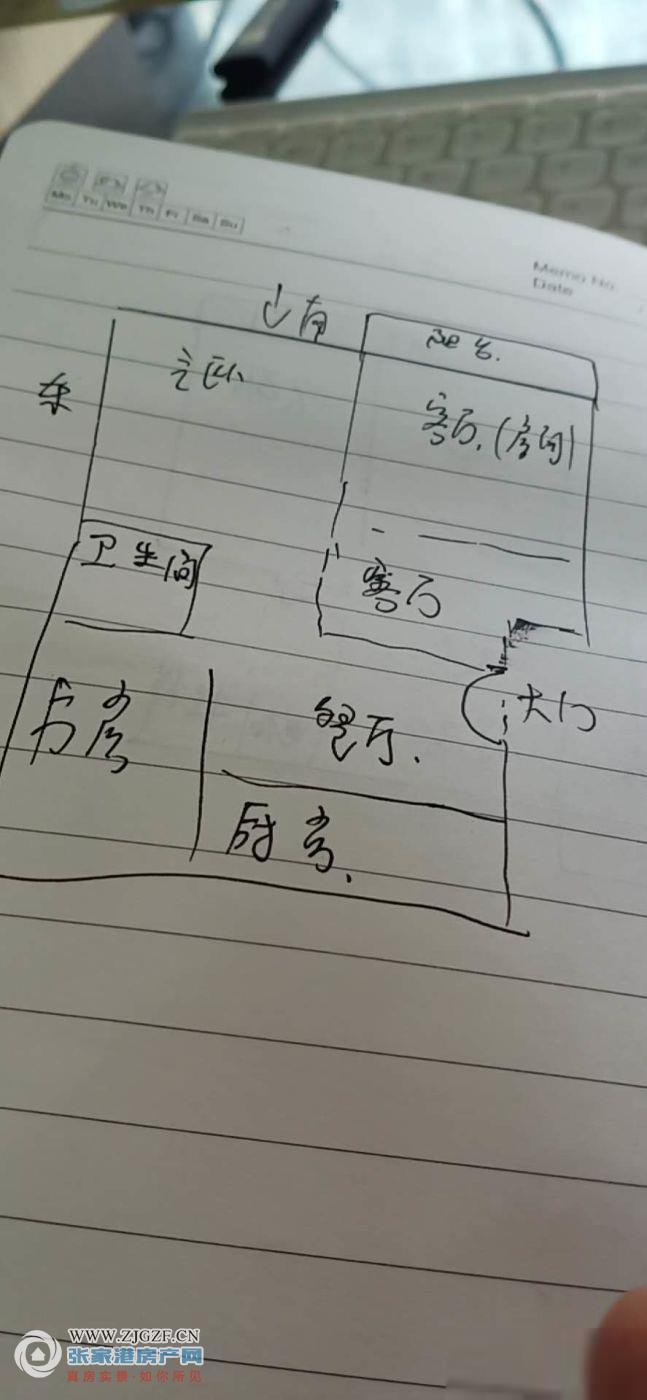 Mo Tu We Th Fr Sa Su
Memo No.
Date
南
阳台
主卧
东
客厅.(房间)
卫生间
客厅
书房
餐厅.
大门
厨房.
WWW.ZJGZF.CN
张家港房产网
真房实景·如你所见